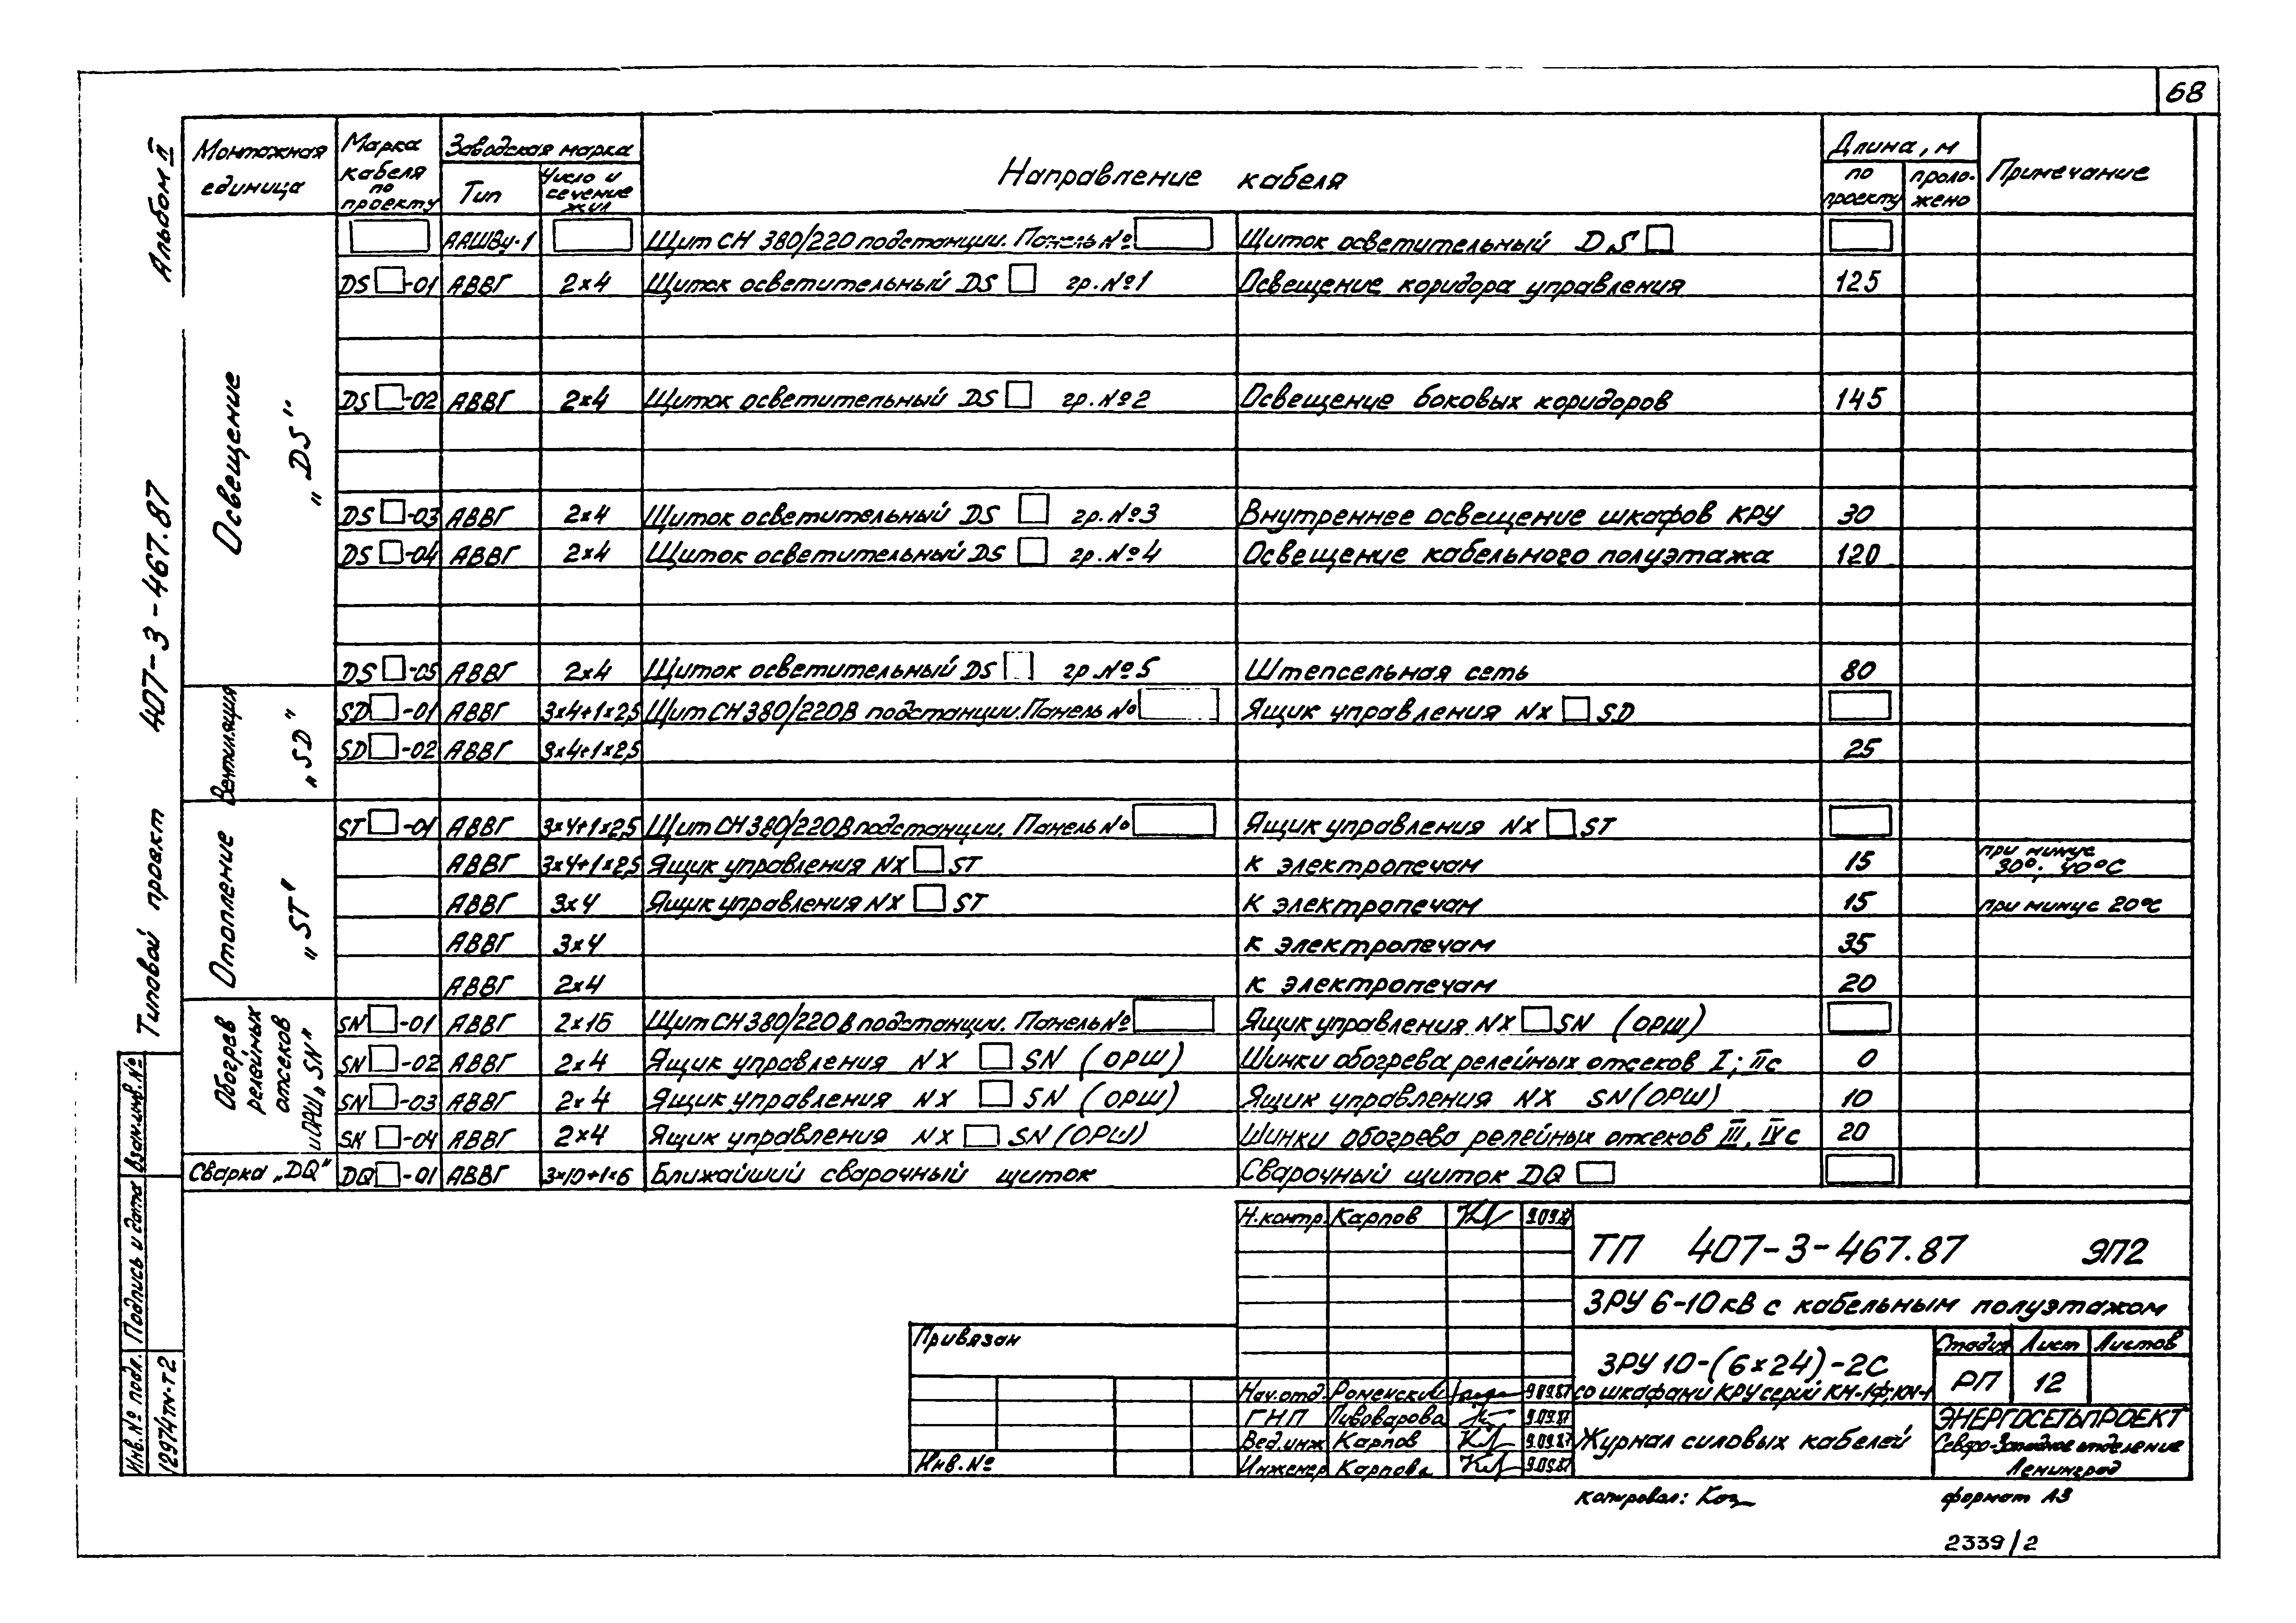 68
Альбом II
Типовой проект 407-3-467.87
Монтажная единица | Марка кабеля по проекту | Заводская марка | Направление кабеля | Длина, м | Примечание
Тип | Число и сечение жил | по проекту | проложено
Освещение „DS"
☐ ААШВу-1 ☐ Щит СН 380/220 подстанции. Панель № ☐ Щиток осветительный DS ☐ ☐
DS ☐-01 АВВГ 2×4 Щиток осветительный DS ☐ гр. №1 Освещение коридора управления 125
DS ☐-02 АВВГ 2×4 Щиток осветительный DS ☐ гр. №2 Освещение боковых коридоров 145
DS ☐-03 АВВГ 2×4 Щиток осветительный DS ☐ гр. №3 Внутреннее освещение шкафов КРУ 30
DS ☐-04 АВВГ 2×4 Щиток осветительный DS ☐ гр. №4 Освещение кабельного полуэтажа 120
DS ☐-05 АВВГ 2×4 Щиток осветительный DS ☐ гр. №5 Штепсельная сеть 80
Вентиляция „SD"
SD ☐-01 АВВГ 3×4+1×2,5 Щит СН 380/220В подстанции. Панель № ☐ Ящик управления NX ☐ SD ☐
SD ☐-02 АВВГ 3×4+1×2,5 25
Отопление „ST"
ST ☐-01 АВВГ 3×4+1×2,5 Щит СН 380/220В подстанции. Панель № ☐ Ящик управления NX ☐ ST ☐
АВВГ 3×4+1×2,5 Ящик управления NX ☐ ST к электропечам 15 при минус 30°; 40°С
АВВГ 3×4 Ящик управления NX ☐ ST к электропечам 15 при минус 20°С
АВВГ 3×4 к электропечам 35
АВВГ 2×4 к электропечам 20
Обогрев релейных отсеков и ОРШ „SN"
SN ☐-01 АВВГ 2×16 Щит СН 380/220 В подстанции. Панель № ☐ Ящик управления NX ☐ SN (ОРШ) ☐
SN ☐-02 АВВГ 2×4 Ящик управления NX ☐ SN (ОРШ) Шинки обогрева релейных отсеков I; IIс 0
SN ☐-03 АВВГ 2×4 Ящик управления NX ☐ SN (ОРШ) Ящик управления NX SN (ОРШ) 10
SN ☐-04 АВВГ 2×4 Ящик управления NX ☐ SN (ОРШ) Шинки обогрева релейных отсеков III, IVс 20
Сварка „DQ" DQ ☐-01 АВВГ 3×10+1×6 Ближайший сварочный щиток Сварочный щиток DQ ☐ ☐
Взам.инв.№
Подпись и дата
Инв.№ подл.
12974тм-т2
Привязан
Инв.№
Н.контр. Карпов
Нач.отд. Роменский 9.09.87
ГНП Пивоварова 9.09.87
Вед.инж Карпов 9.09.87
Инженер Карпова 9.09.87
ТП 407-3-467.87 ЭП2
ЗРУ 6-10кВ с кабельным полуэтажом
ЗРУ 10-(6×24)-2С
со шкафами КРУ серий КМ-1Ф; КМ-1
Журнал силовых кабелей
Стадия Лист Листов
РП 12
ЭНЕРГОСЕТЬПРОЕКТ
Северо-Западное отделение
Ленинград
копировал:
формат А3
2339/2